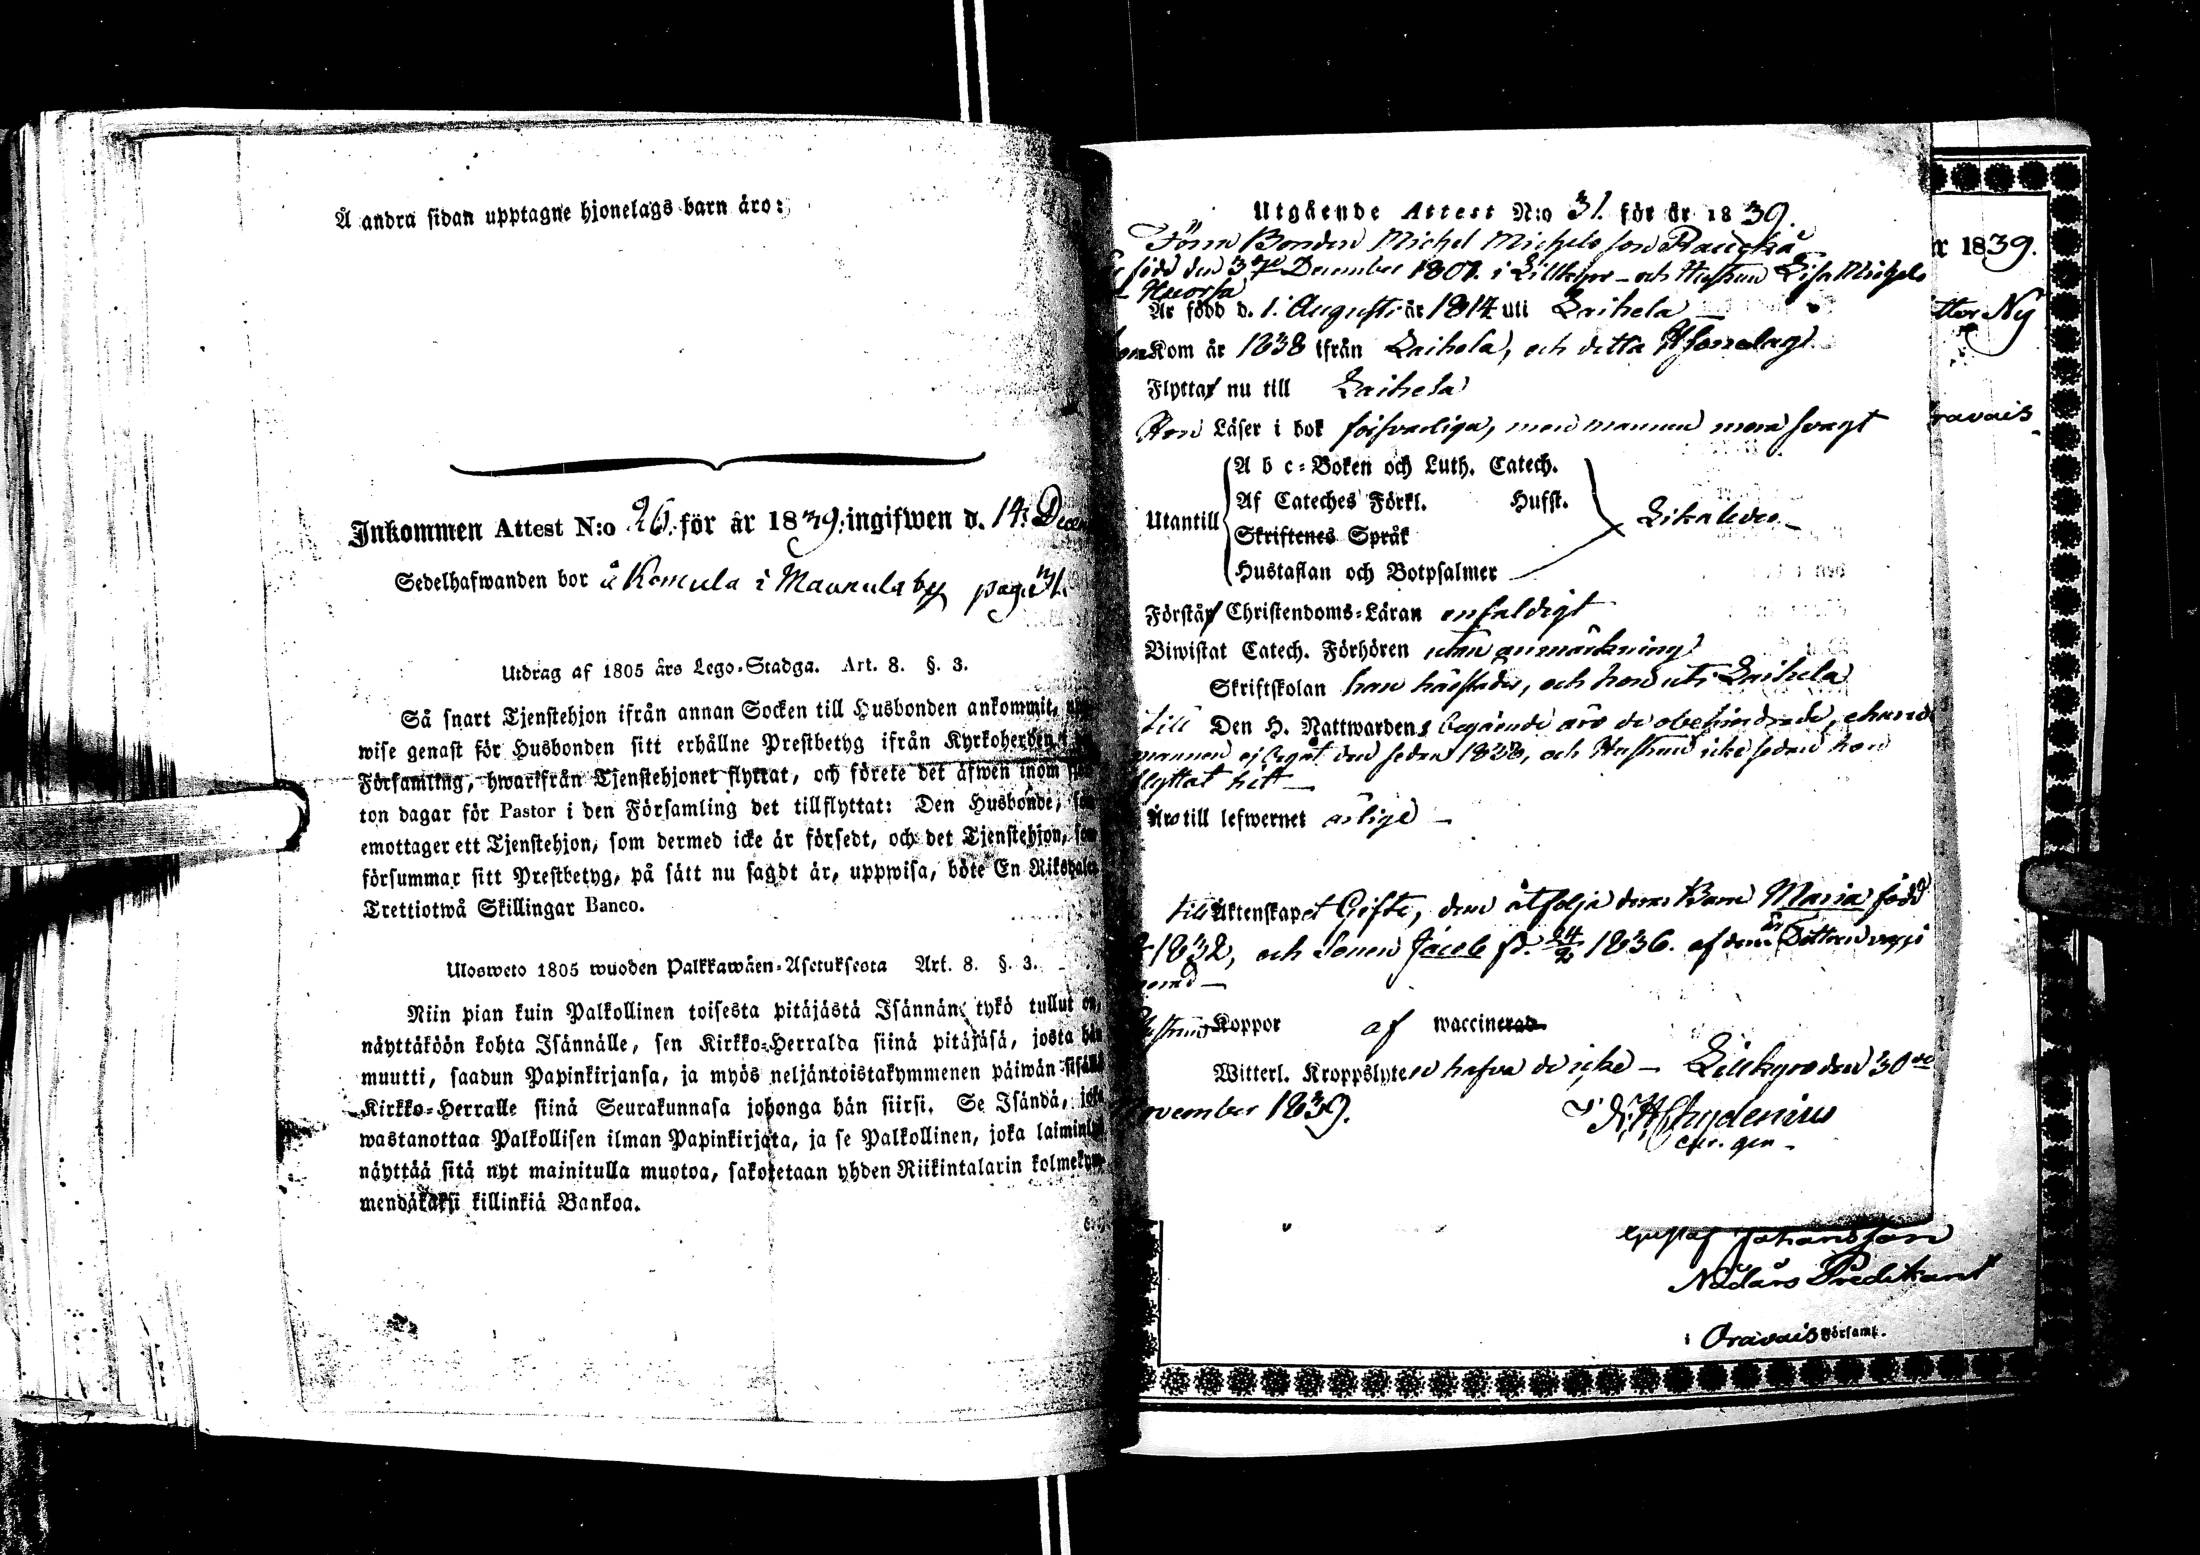 Å andra sidan upptagne hjonelags barn äro:
Inkommen Attest N:o 26. för år 1839. ingifwen d. 14 Decem
Sedelhafwanden bor å Komula i Maunula by pag. 31.
Utdrag af 1805 års Lego-Stadga. Art. 8. §. 3.
Så snart Tjenstehjon ifrån annan Socken till Husbonden ankommit,
wise genast för Husbonden sitt erhållne Prestbetyg ifrån Kyrkoherden i
Församling, hwarifrån Tjenstehjonet flyttat, och förete det äfwen inom
ton dagar för Pastor i den Församling det tillflyttat: Den Husbonde, som
emottager ett Tjenstehjon, som dermed icke är försedt, och det Tjenstehjon, som
försummar sitt Prestbetyg, på sätt nu sagdt är, uppwisa, böte En Riksdaler
Trettiotwå Skillingar Banco.
Ulosweto 1805 wuoden Palkkawäen-Asetuksesta Art. 8. §. 3.
Niin pian kuin Palkollinen toisesta pitäjästä Isännän tykö tullut on,
näyttäköön kohta Isännälle, sen Kirkko-Herralda siinä pitäjäsä, josta hän
muutti, saadun Papinkirjansa, ja myös neljäntoistakymmenen päiwän sisällä
Kirkko-Herralle siinä Seurakunnasa johonga hän siirsi. Se Isändä, joka
wastanottaa Palkollisen ilman Papinkirjata, ja se Palkollinen, joka laiminlyö
näyttää sitä nyt mainitulla muotoa, sakotetaan yhden Riikintalarin kolmekym-
mendäkaksi killinkiä Bankoa.
Utgående Attest N:o 31. för år 1839.
Förra Bonden Michel Michelsson
född den 3dje December 1801. i Lillkyro - och Hustrun Lisa Michels
Är född d. 1. Augusti år 1814 uti Laihela
Kom år 1838 ifrån Laihela, och detta Hjonelag
Flyttar nu till Laihela
Hon Läser i bok försvarliga, men mannen mera svagt
Utantill
A b c-Boken och Luth. Catech.
Af Cateches Förkl. Hufst.
Skriftenes Språk
Hustaflan och Botpsalmer
Likaledes.
Förstår Christendoms-Läran enfaldigt
Biwistat Catech. Förhören utan anmärkning
Skriftskolan han härstädes, och hon uti Laihela
till Den H. Nattwardens begående äro de obehindrade, ehuru
mannen ej begåt den sedan 1838, och Hustrun icke sedan hon
flyttat hit
Äro till lefwernet ärlige
till Äktenskapet Gifte, dem åtfölja deras Barn Maria född
1832, och Sonen Jacob f. 24/2 1836. af dem är Dottern
Koppor af waccinerad
Witterl. Kroppslyten hafva de icke - Lillkyro den 30de
November 1839.
Chydenius
r 1839.
tter Ny
ravais
Gustaf Johansson
Nådårs Predikant
i Oravais Församl.